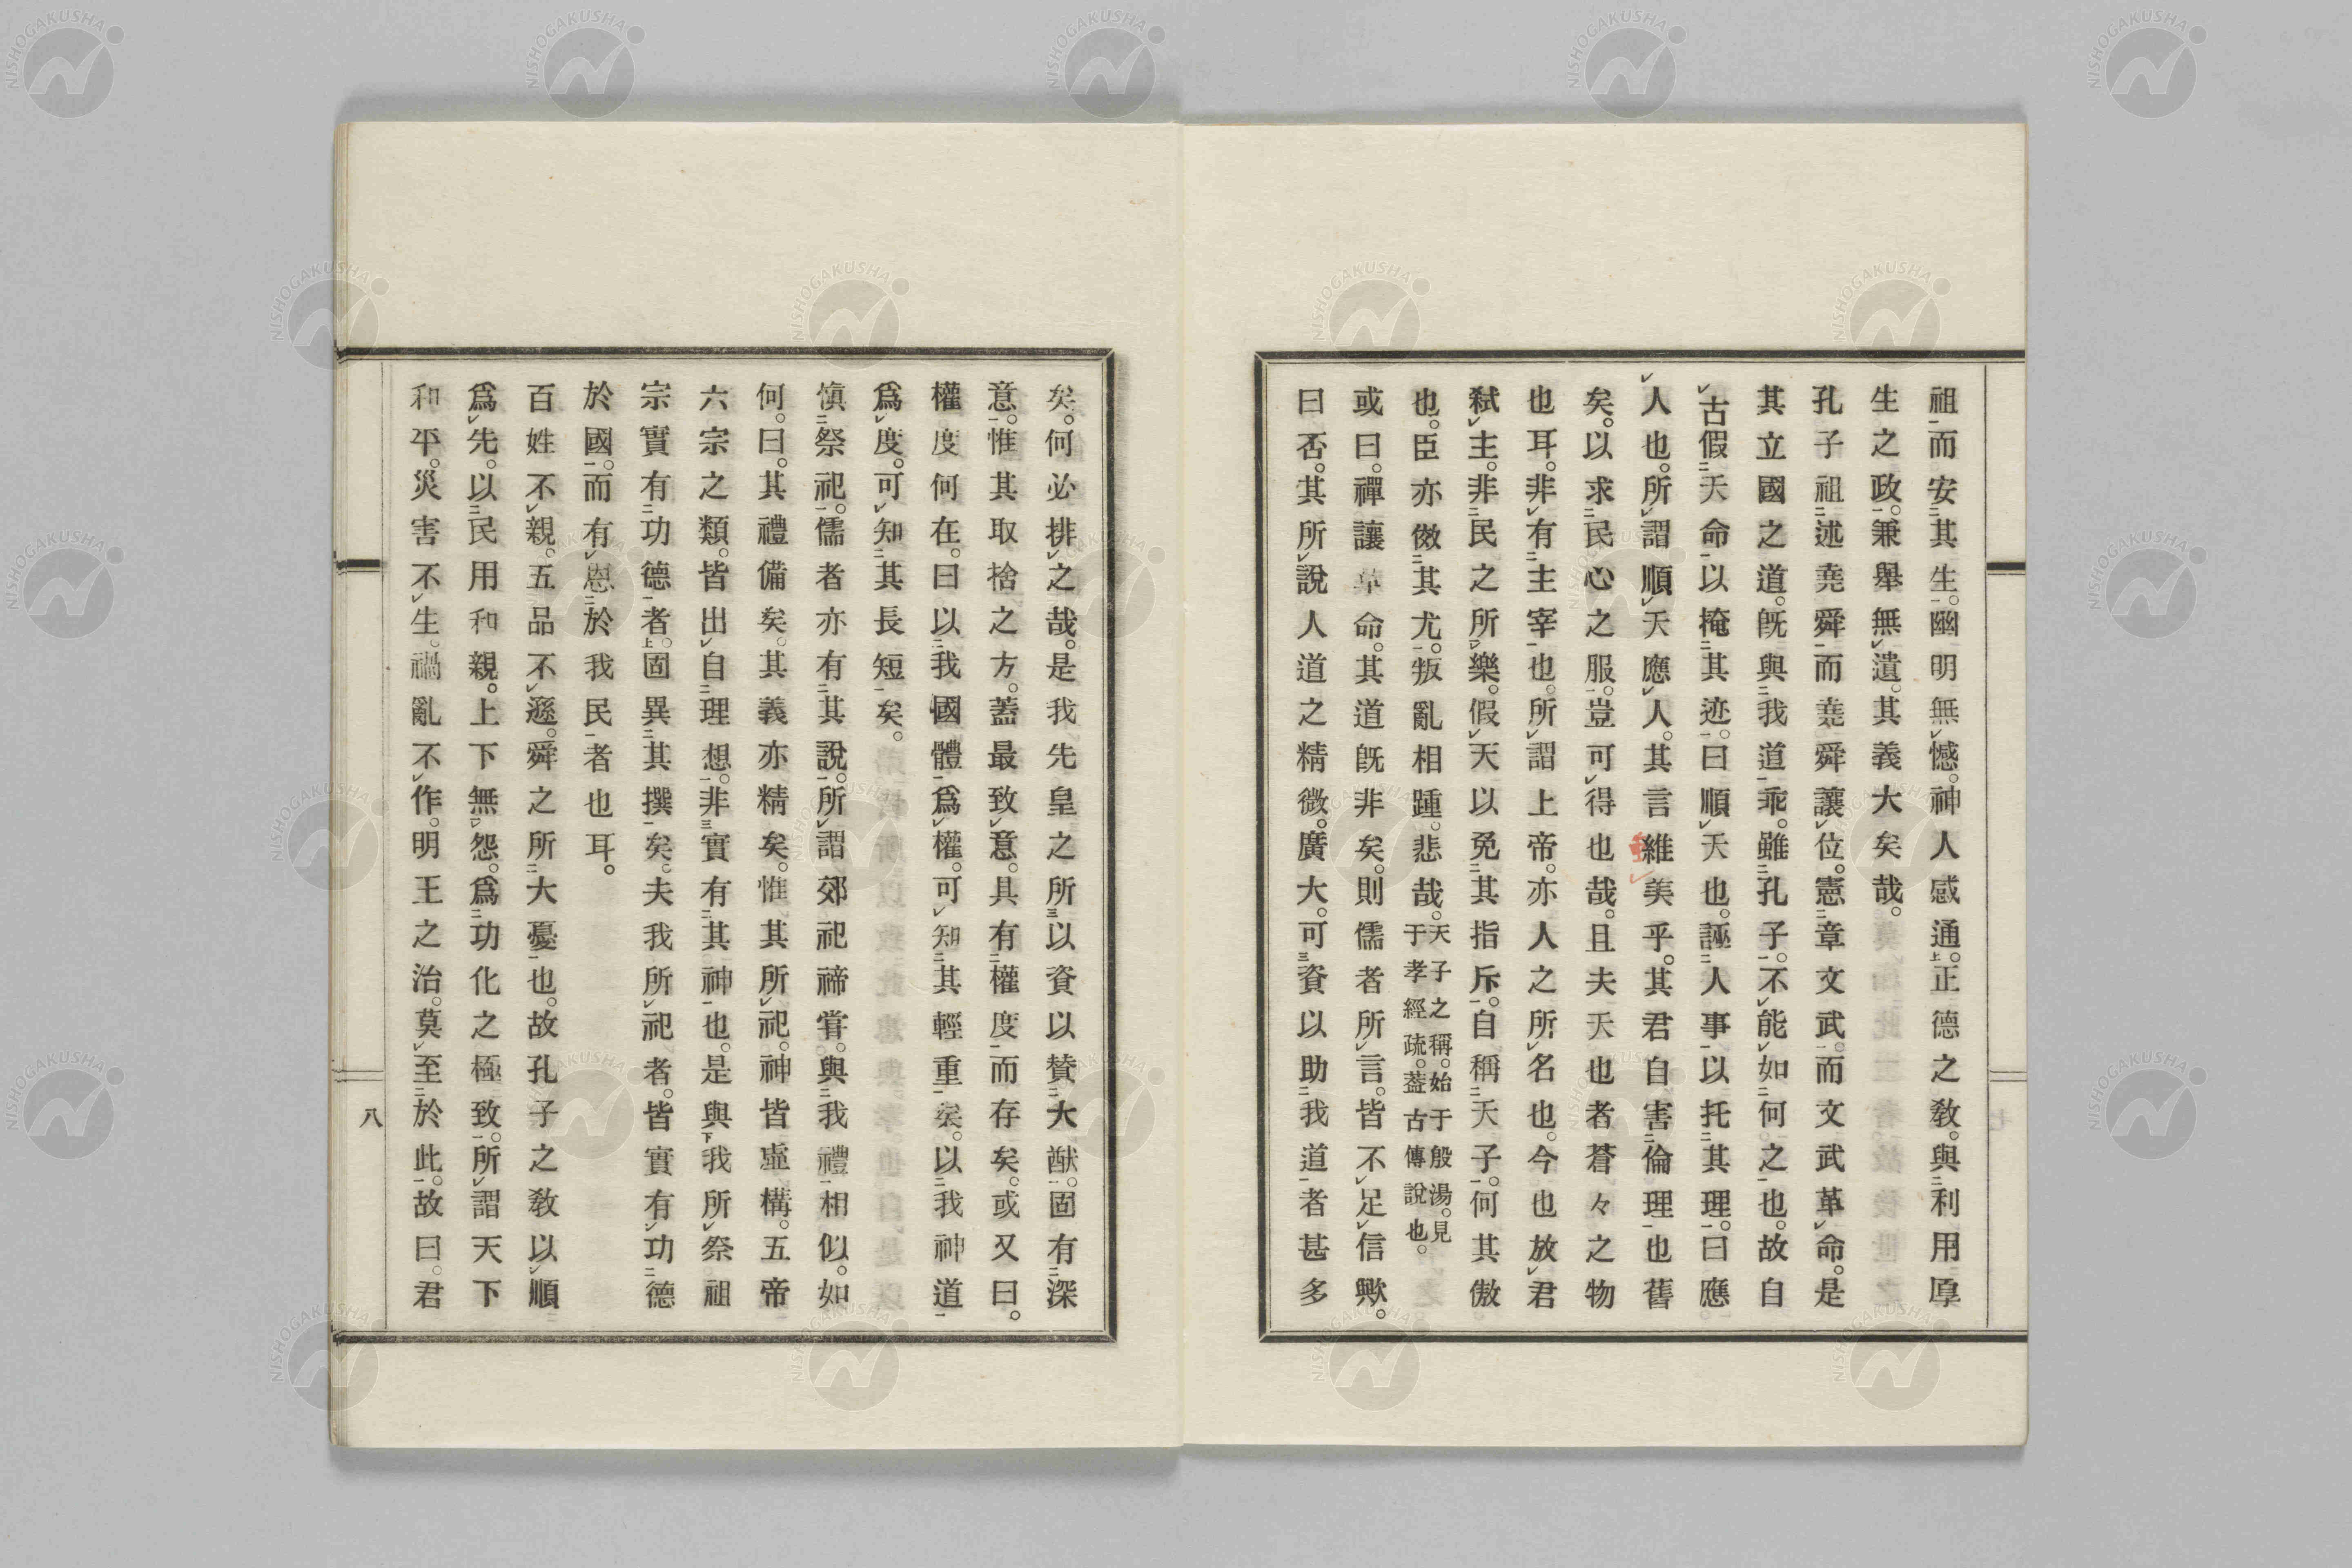 祖而安其生。幽明無憾。神人感通。正德之敎。與利用厚
生之政。兼擧無遺。其義大矣哉。
孔子祖述堯舜而堯舜讓位。憲章文武。而文武革命。是
其立國之道。旣與我道乖。雖孔子。不能如何之也。故自
古假天命以掩其迹。曰順天也。誣人事以托其理。曰應
人也。所謂順天應人。其言維美乎。其君自害倫理也舊
矣。以求民心之服。豈可得也哉。且夫天也者蒼々之物
也耳。非有主宰也。所謂上帝。亦人之所名也。今也放君
弑主。非民之所樂。假天以免其指斥。自稱天子。何其傲
也。臣亦傚其尤。叛亂相踵。悲哉。天子之稱。始于殷湯。見于孝經疏。蓋古傳說也。
或曰。禪讓革命。其道旣非矣。則儒者所言。皆不足信歟。
曰否。其所說人道之精微。廣大。可資以助我道者甚多
矣。何必排之哉。是我先皇之所以資以贊大猷。固有深
意。惟其取捨之方。蓋最致意。具有權度而存矣。或又曰。
權度何在。曰以我國體爲權。可知其輕重矣。以我神道
爲度。可知其長短矣。
愼祭祀。儒者亦有其說。所謂郊祀禘嘗。與我禮相似。如
何。曰。其禮備矣。其義亦精矣。惟其所祀。神皆虛構。五帝
六宗之類。皆出自理想。非實有其神也。是與我所祭祖
宗實有功德者。固異其撰矣。夫我所祀者。皆實有功德
於國。而有恩於我民者也耳。
百姓不親。五品不遜。舜之所大憂也。故孔子之敎以順
爲先。以民用和親。上下無怨。爲功化之極致。所謂天下
和平。災害不生。禍亂不作。明王之治。莫至於此。故曰。君
八